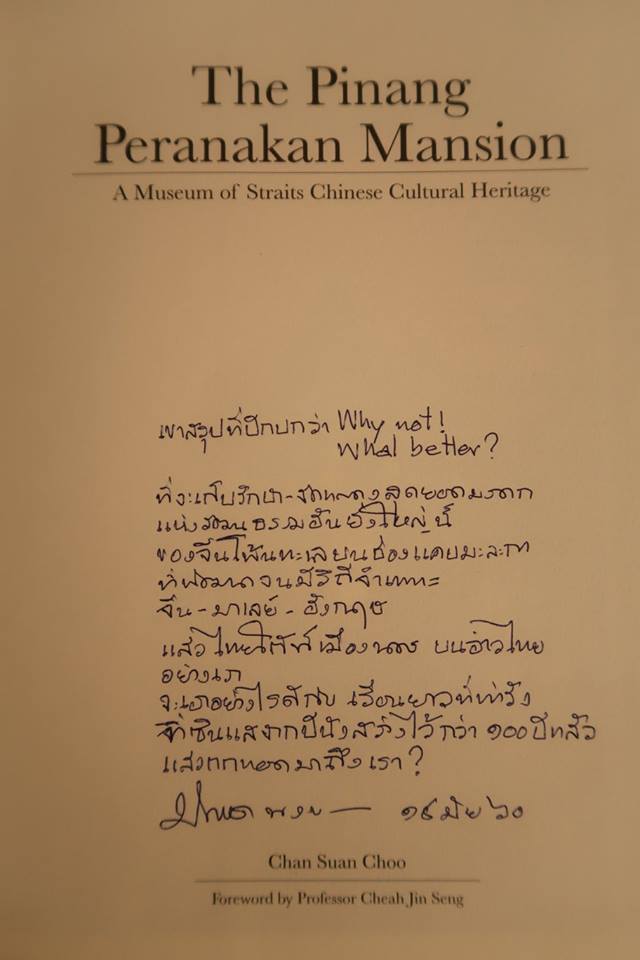 The Pinang
Peranakan Mansion
A Museum of Straits Chinese Cultural Heritage
เขาสรุปที่ปีกปกว่า Why not!
What better?
ที่จะเก็บรักษา-จัดแสดงสุดยอดมรดก
แห่งวัฒนธรรมอันยิ่งใหญ่นี้
ของจีนโพ้นทะเลบนช่องแคบมะละกา
ที่พัฒนาจนมีวิถีจำเพาะ
จีน-มาเลย์-อังกฤษ
แล้วไทยใต้ที่เมืองนคร บนอ่าวไทย
อย่างเรา
จะเอาอย่างไรดีกับ เรือนยาวที่ท่าวัง
ที่ซินแสจากปีนังสร้างไว้กว่า ๑๐๐ ปีแล้ว
แล้วตกทอดมาถึงเรา?
๑๕ มีย ๖๐
Chan Suan Choo
Foreword by Professor Cheah Jin Seng